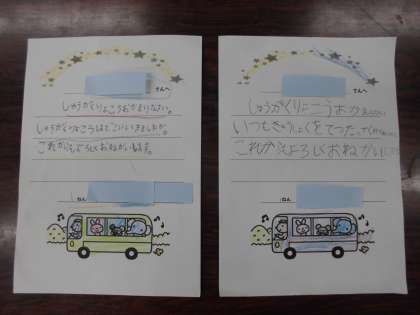 さんへ
しゅうがくりょこうおかえりなさい。
しゅうがくりょこうはどこにいきましたか。
これからもよろしくおねがいします。
ねん
さんへ
しゅうがくりょこうおか
いつもきゅうしょくをてつだ
これからもよろしくおねがいします
ねん